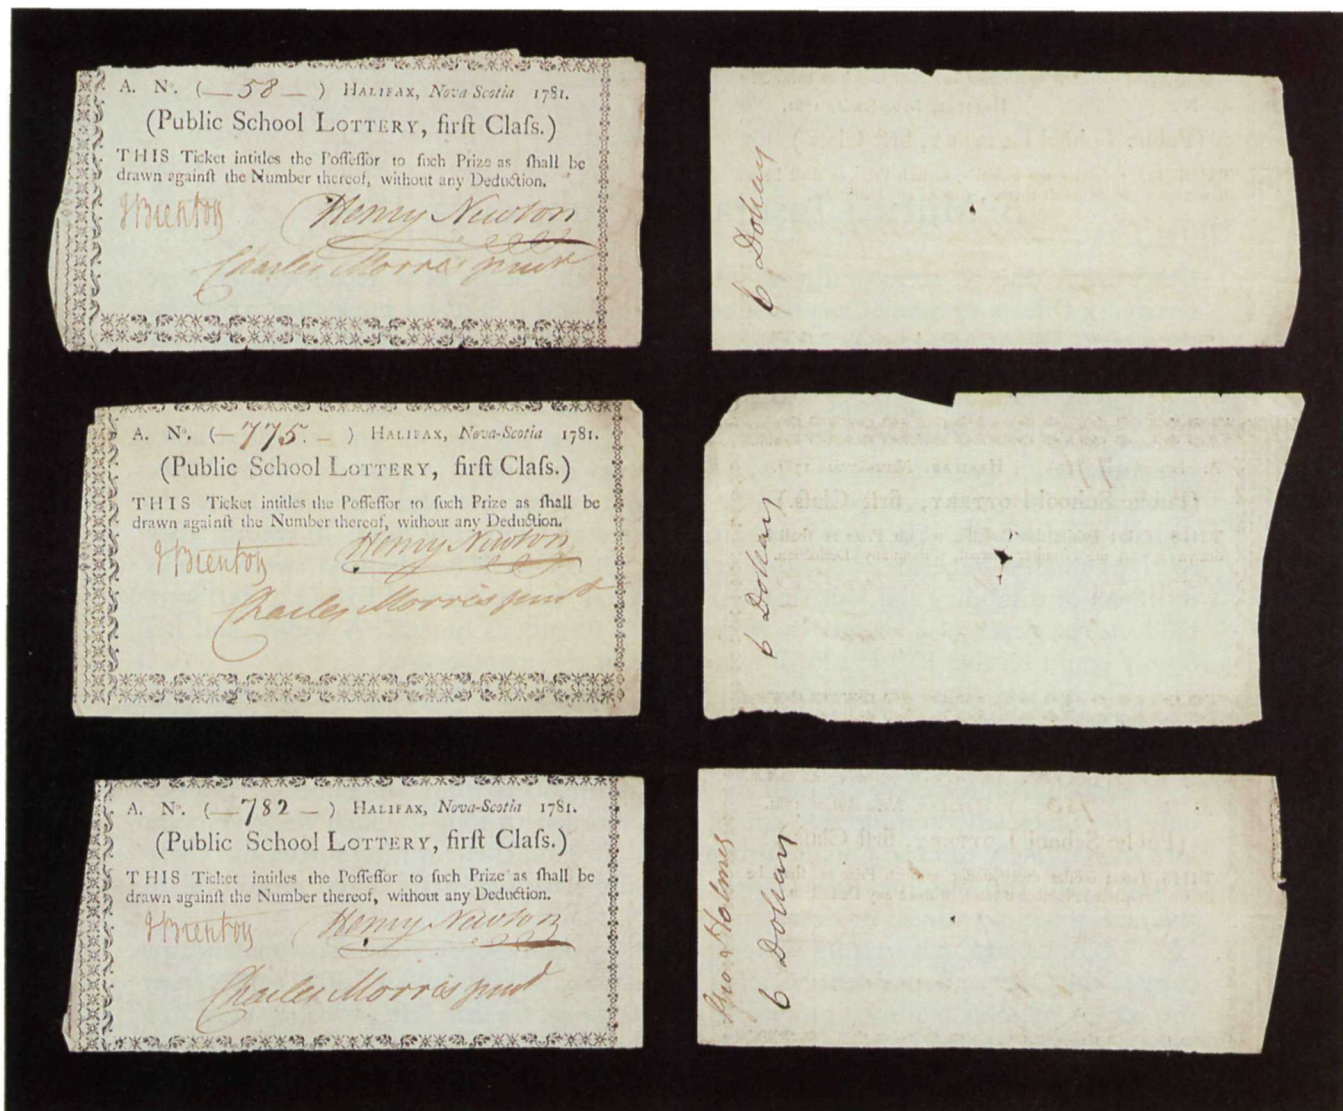 A. No. (—58—) HALIFAX, Nova Scotia 1781.
(Public School LOTTERY, firſt Claſs.)
THIS Ticket intitles the Poſſeſſor to ſuch Prize as ſhall be
drawn againſt the Number thereof, without any Deduction.
J Brenton Henry Newton
Charles Morris junr
6 Dollars
A. No. (—775.—) HALIFAX, Nova-Scotia 1781.
(Public School LOTTERY, firſt Claſs.)
THIS Ticket intitles the Poſſeſſor to ſuch Prize as ſhall be
drawn againſt the Number thereof, without any Deduction.
J Brenton Henry Newton
Charles Morris junr
6 Dollars
A. No. (—782—) HALIFAX, Nova-Scotia 1781.
(Public School LOTTERY, firſt Claſs.)
THIS Ticket intitles the Poſſeſſor to ſuch Prize as ſhall be
drawn againſt the Number thereof, without any Deduction.
J Brenton Henry Newton
Charles Morris junr
Holmes
6 Dollars